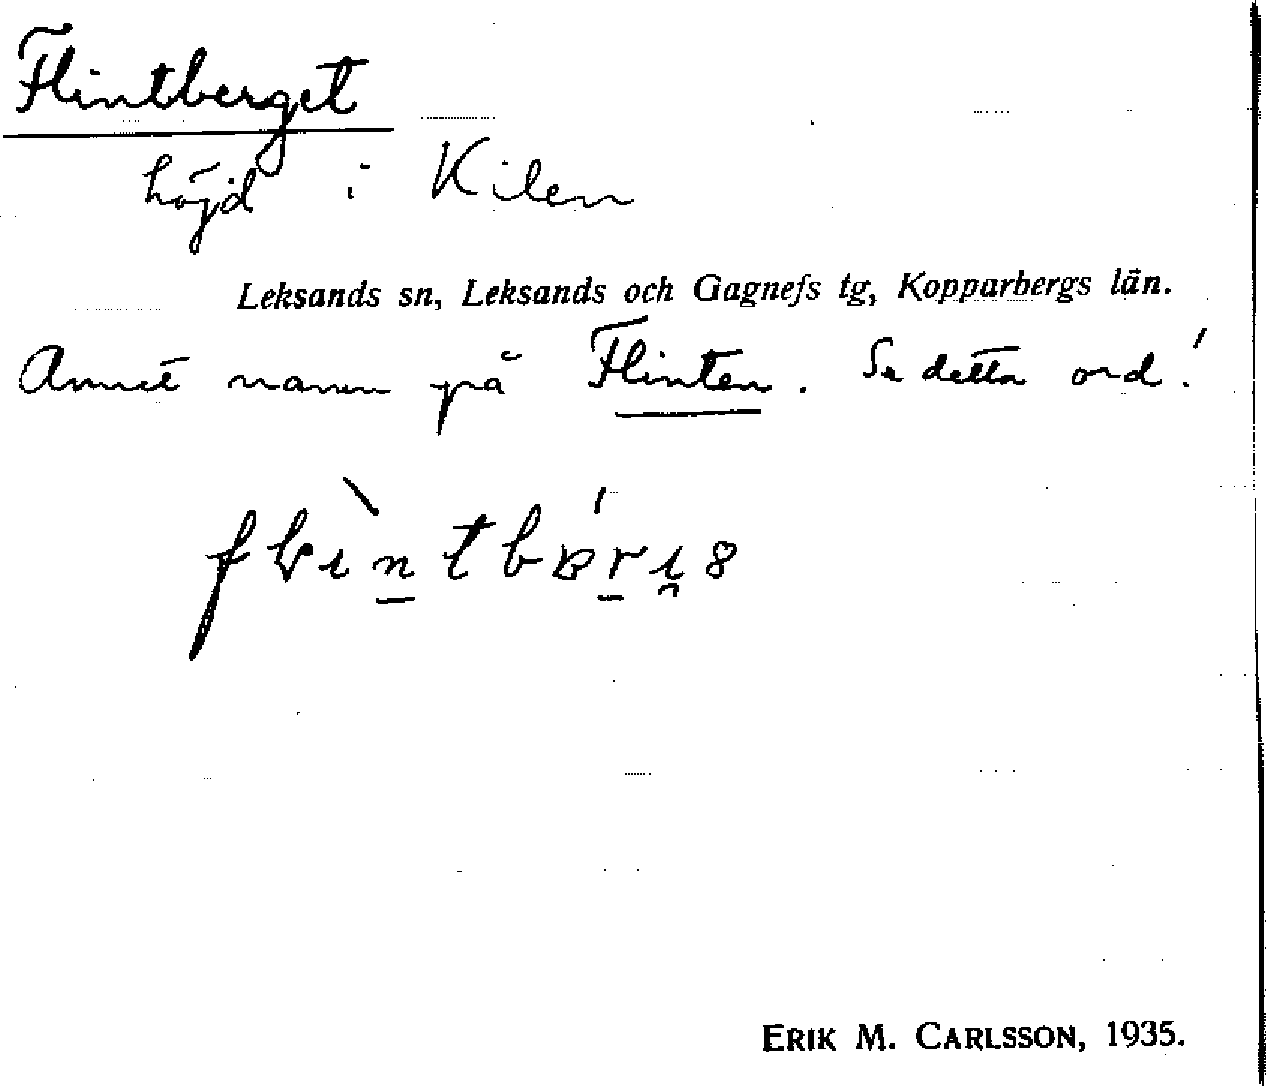 Flintberget
höjd i Kilen
Leksands sn, Leksands och Gagnefs tg, Kopparbergs län.
Annat namn på Flinten. Se detta ord!
ERIK M. CARLSSON, 1935.